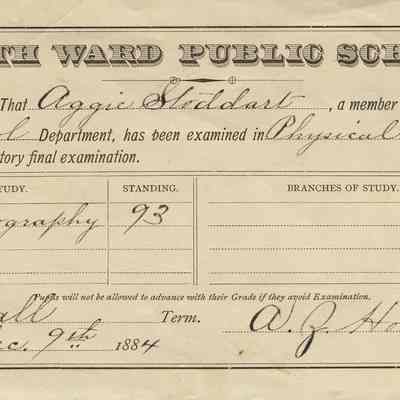 TH WARD PUBLIC SCH
That Aggie Stoddart, a member
ol Department, has been examined in Physical
tory final examination.
TUDY. STANDING. BRANCHES OF STUDY.
ography 93
Pupils will not be allowed to advance with their Grade if they avoid Examination.
all Term. W. J. Ho
ec. 9th 1884